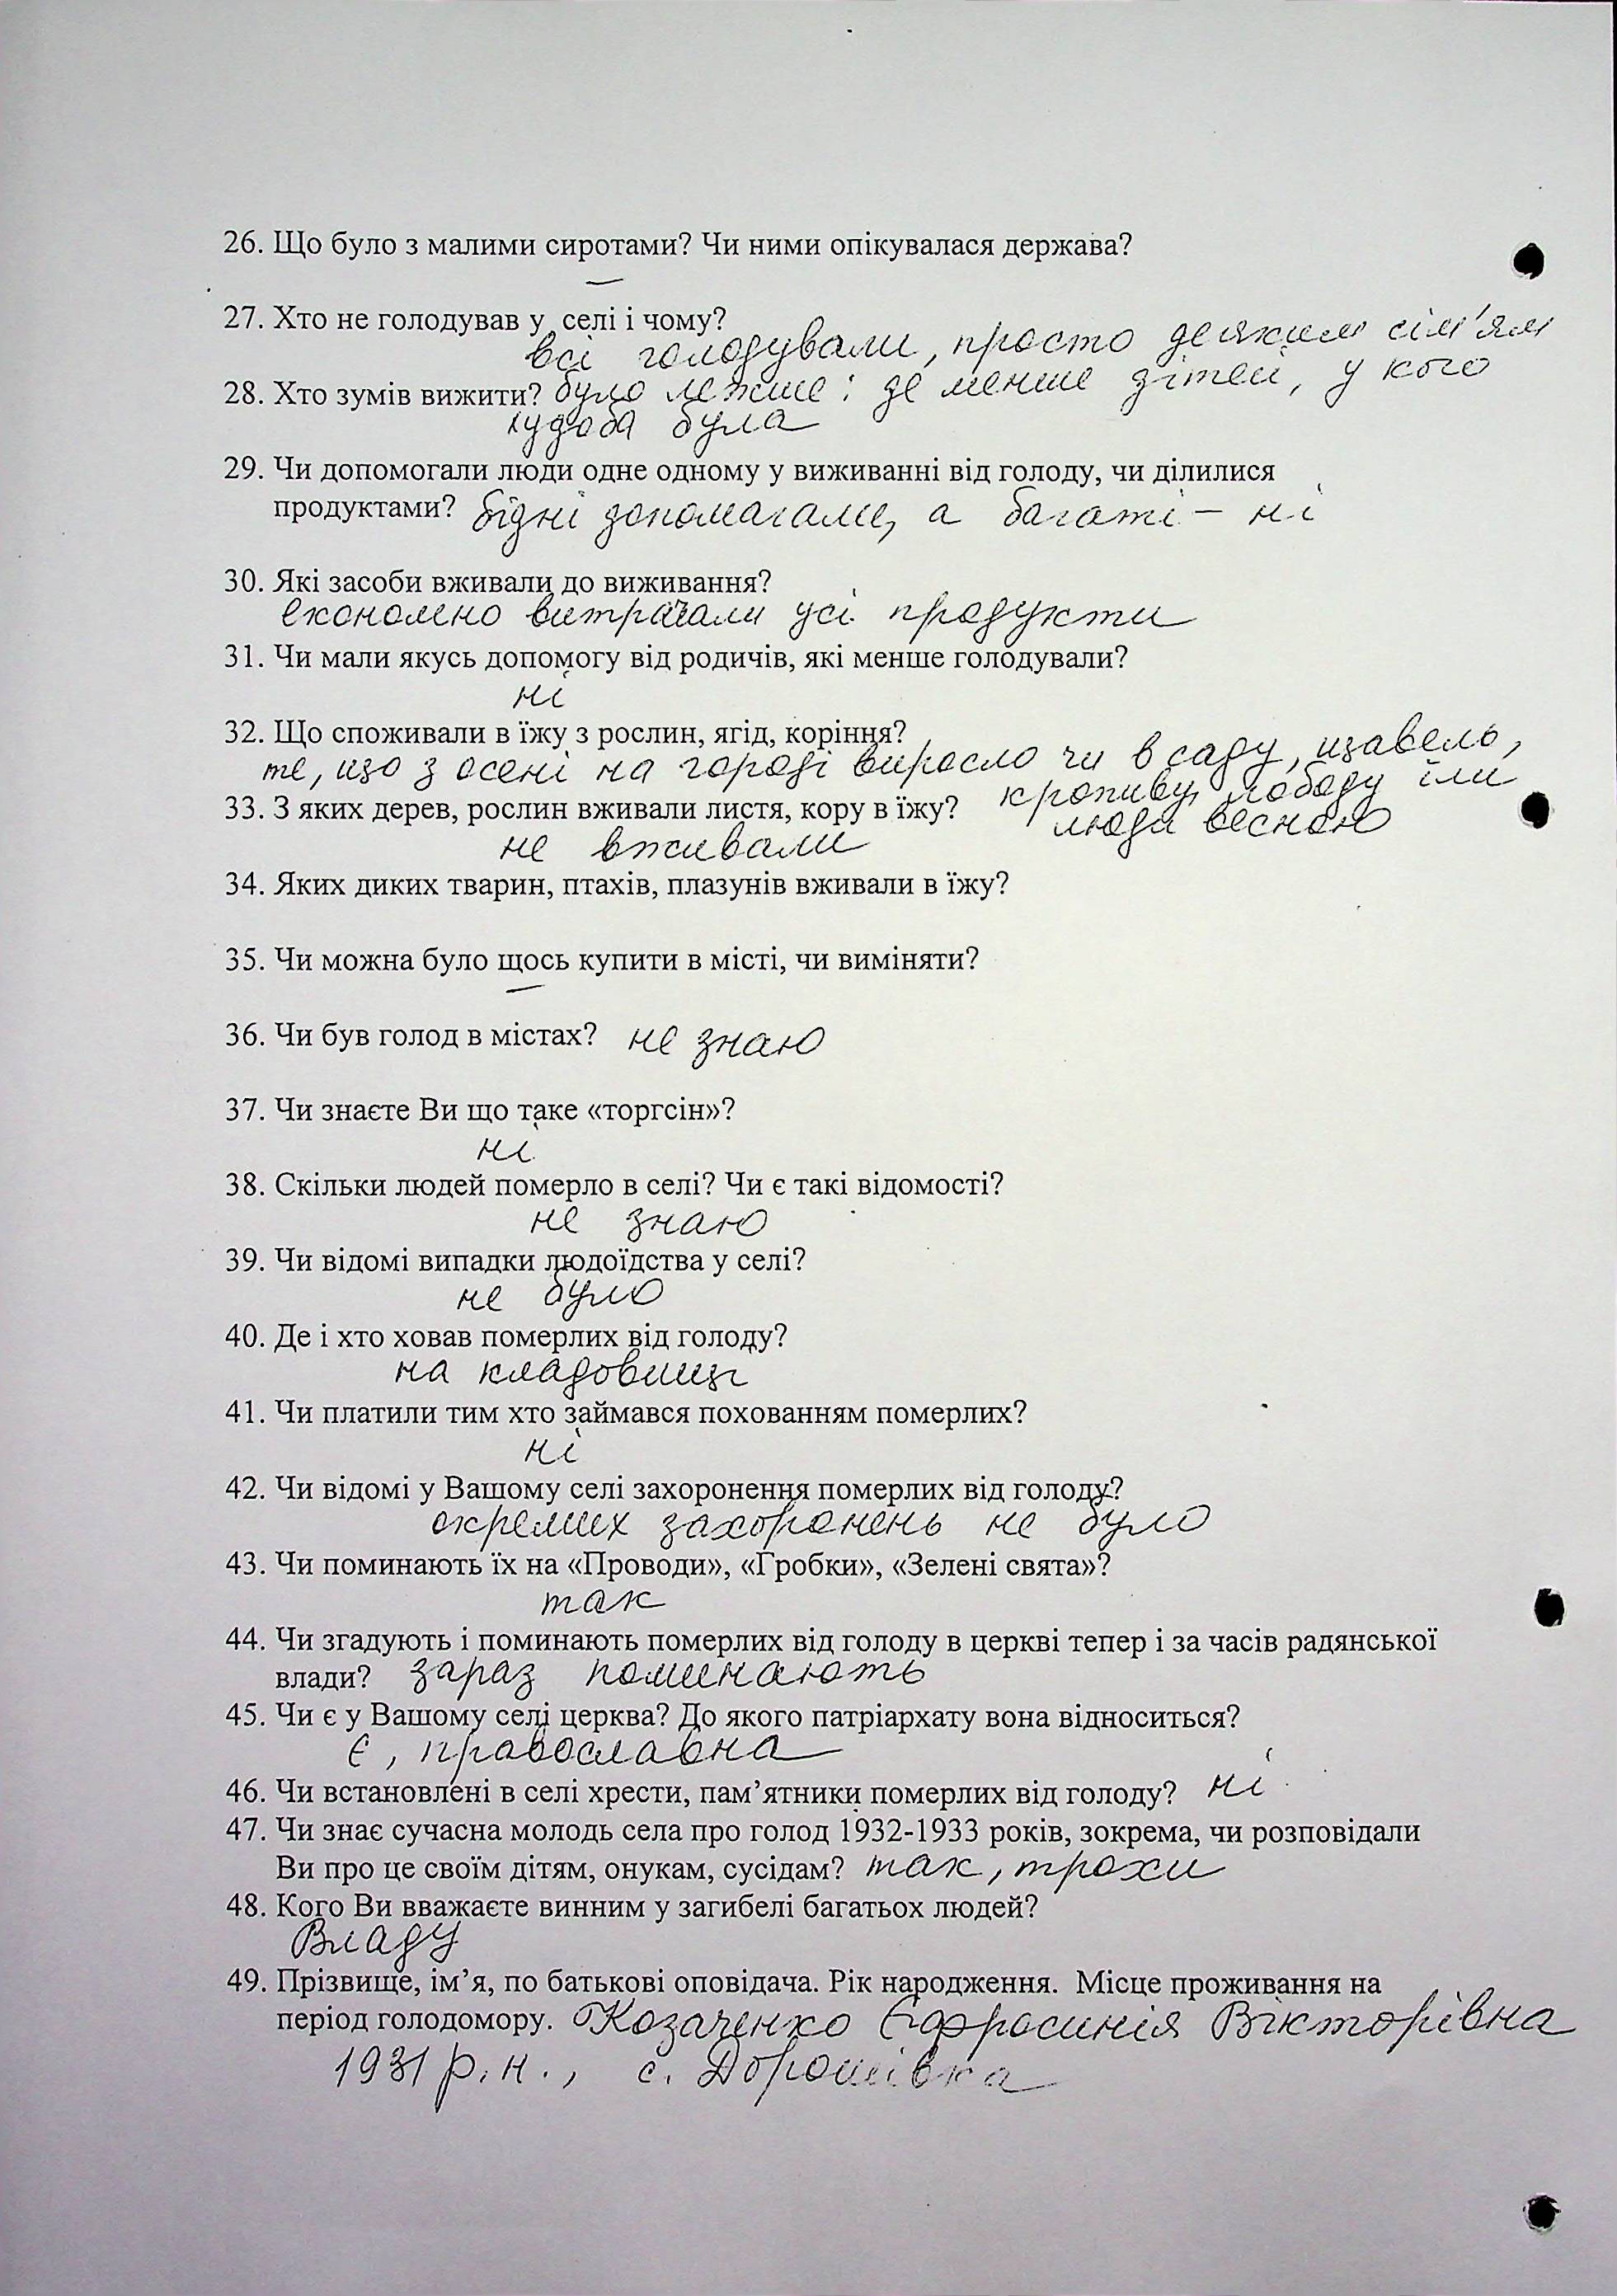 26. Що було з малими сиротами? Чи ними опікувалася держава?
—
27. Хто не голодував у селі і чому?
всі голодували, просто деяким сім'ям
28. Хто зумів вижити? було легше: де менше дітей, у кого
худоба була
29. Чи допомогали люди одне одному у виживанні від голоду, чи ділилися
продуктами? бідні допомагали, а багаті – ні
30. Які засоби вживали до виживання?
економно витрачали усі продукти
31. Чи мали якусь допомогу від родичів, які менше голодували?
ні
32. Що споживали в їжу з рослин, ягід, коріння?
те, що з осені на городі виросло чи в саду, щавель,
кропиву, лободу їли
33. З яких дерев, рослин вживали листя, кору в їжу? люди весною
не вживали
34. Яких диких тварин, птахів, плазунів вживали в їжу?
35. Чи можна було щось купити в місті, чи виміняти?
—
36. Чи був голод в містах? не знаю
37. Чи знаєте Ви що таке «торгсін»?
ні
38. Скільки людей померло в селі? Чи є такі відомості?
не знаю
39. Чи відомі випадки людоїдства у селі?
не було
40. Де і хто ховав померлих від голоду?
на кладовищі
41. Чи платили тим хто займався похованням померлих?
ні
42. Чи відомі у Вашому селі захоронення померлих від голоду?
окремих захоронень не було
43. Чи поминають їх на «Проводи», «Гробки», «Зелені свята»?
так
44. Чи згадують і поминають померлих від голоду в церкві тепер і за часів радянської
влади? зараз поминають
45. Чи є у Вашому селі церква? До якого патріархату вона відноситься?
Є, православна
46. Чи встановлені в селі хрести, пам’ятники померлих від голоду? ні
47. Чи знає сучасна молодь села про голод 1932-1933 років, зокрема, чи розповідали
Ви про це своїм дітям, онукам, сусідам? так, трохи
48. Кого Ви вважаєте винним у загибелі багатьох людей?
Владу
49. Прізвище, ім’я, по батькові оповідача. Рік народження. Місце проживання на
період голодомору. Козаченко Єфросинія Вікторівна
1931 р.н., с. Дорошівка